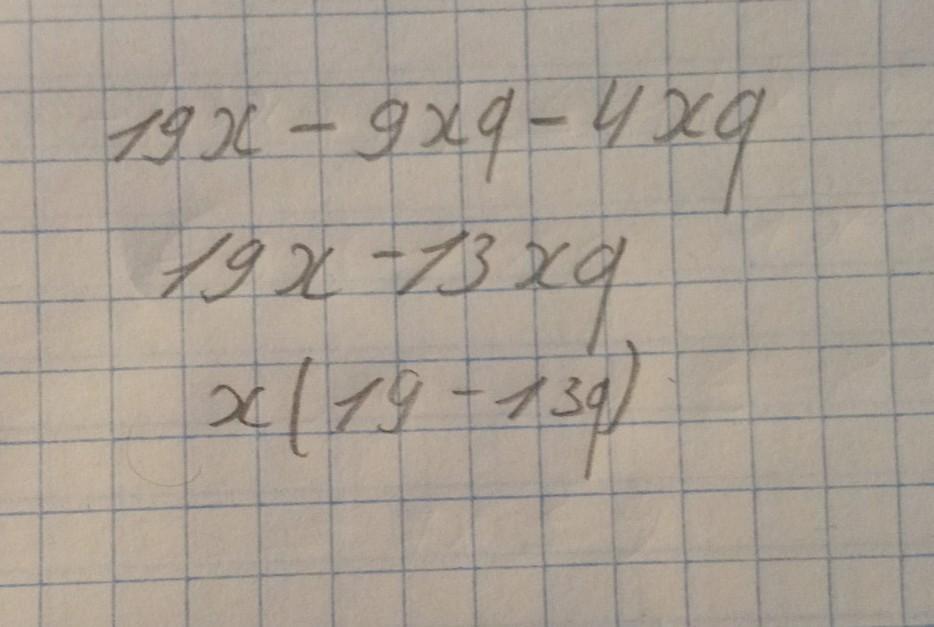 19x - 9xq - 4xq
19x - 13xq
x(19 - 13q)